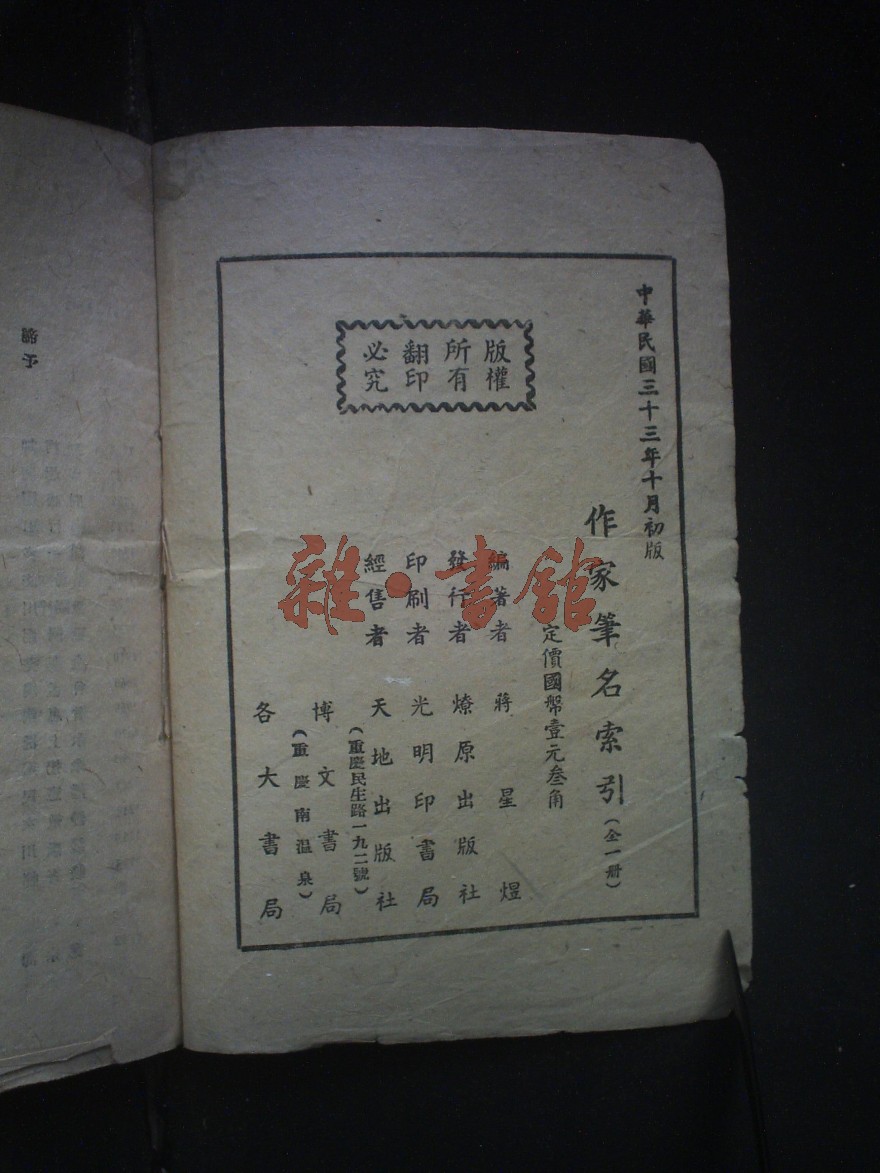 中華民國三十三年十月初版
作家筆名索引（全一冊）
定價國幣壹元叁角
版權
所有
翻印
必究
編著者 蔣星煜
發行者 燎原出版社
印刷者 光明印書局
經售者 天地出版社
（重慶民生路一九二號）
博文書局
（重慶南溫泉）
各大書局
雜·書館